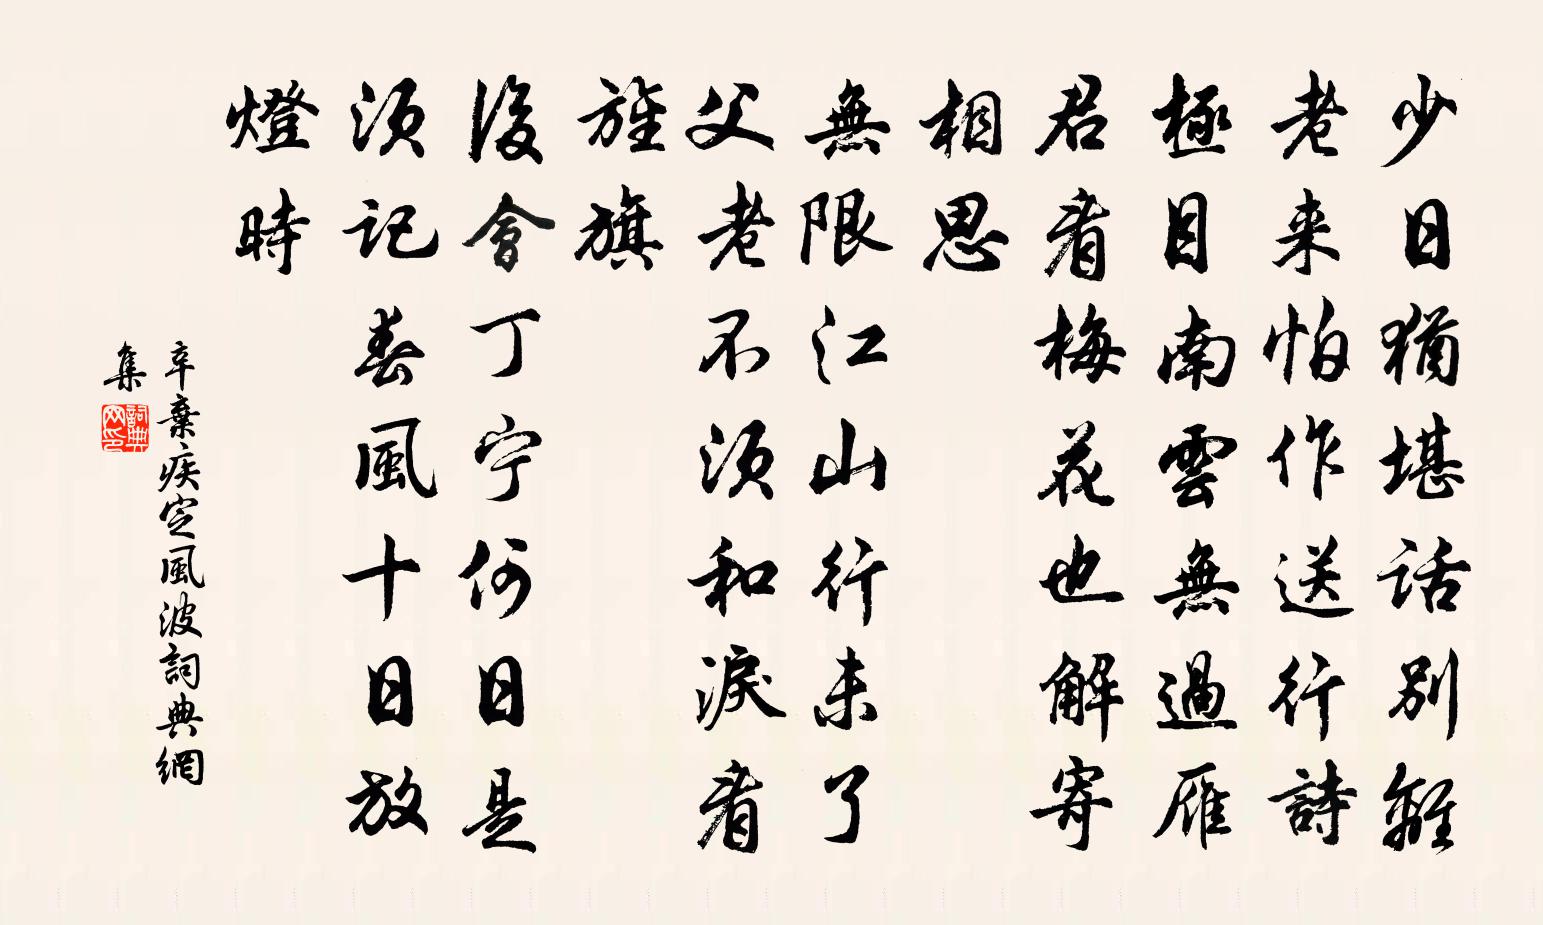 少日猶堪話別離
老来怕作送行詩
極目南雲無過雁
君看梅花也解寄
相思
無限江山行未了
父老不須和淚看
旌旗
後會丁宁何日是
須記春風十日放
燈時
辛棄疾定風波詞典網
集
詞典
网印